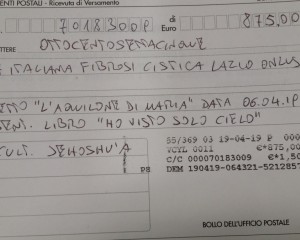 ENTI POSTALI - Ricevuta di Versamento
70183009 di Euro 875,00
LETTERE OTTOCENTOSETTACINQUE
ITALIANA FIBROSI CISTICA LAZIO ONLUS
"L'AQUILONE DI MATTIA" DATA 06.04.19
LIBRO "HO VISTO SOLO CIELO"
JEHOSHU'A
55/369 03 19-04-19 P 000
VCYL 0011 €*875,00
C/C 000070183009 €*1,50
DEM 190419-064321-5212857
BOLLO DELL'UFFICIO POSTALE